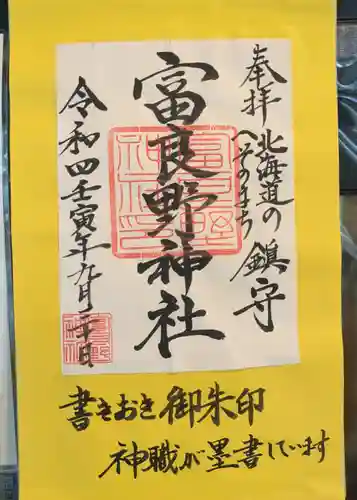 奉拝 北海道の
へそのまち 鎮守
富良野神社
令和四壬寅年九月二十日
書きおき御朱印
神職が墨書しています